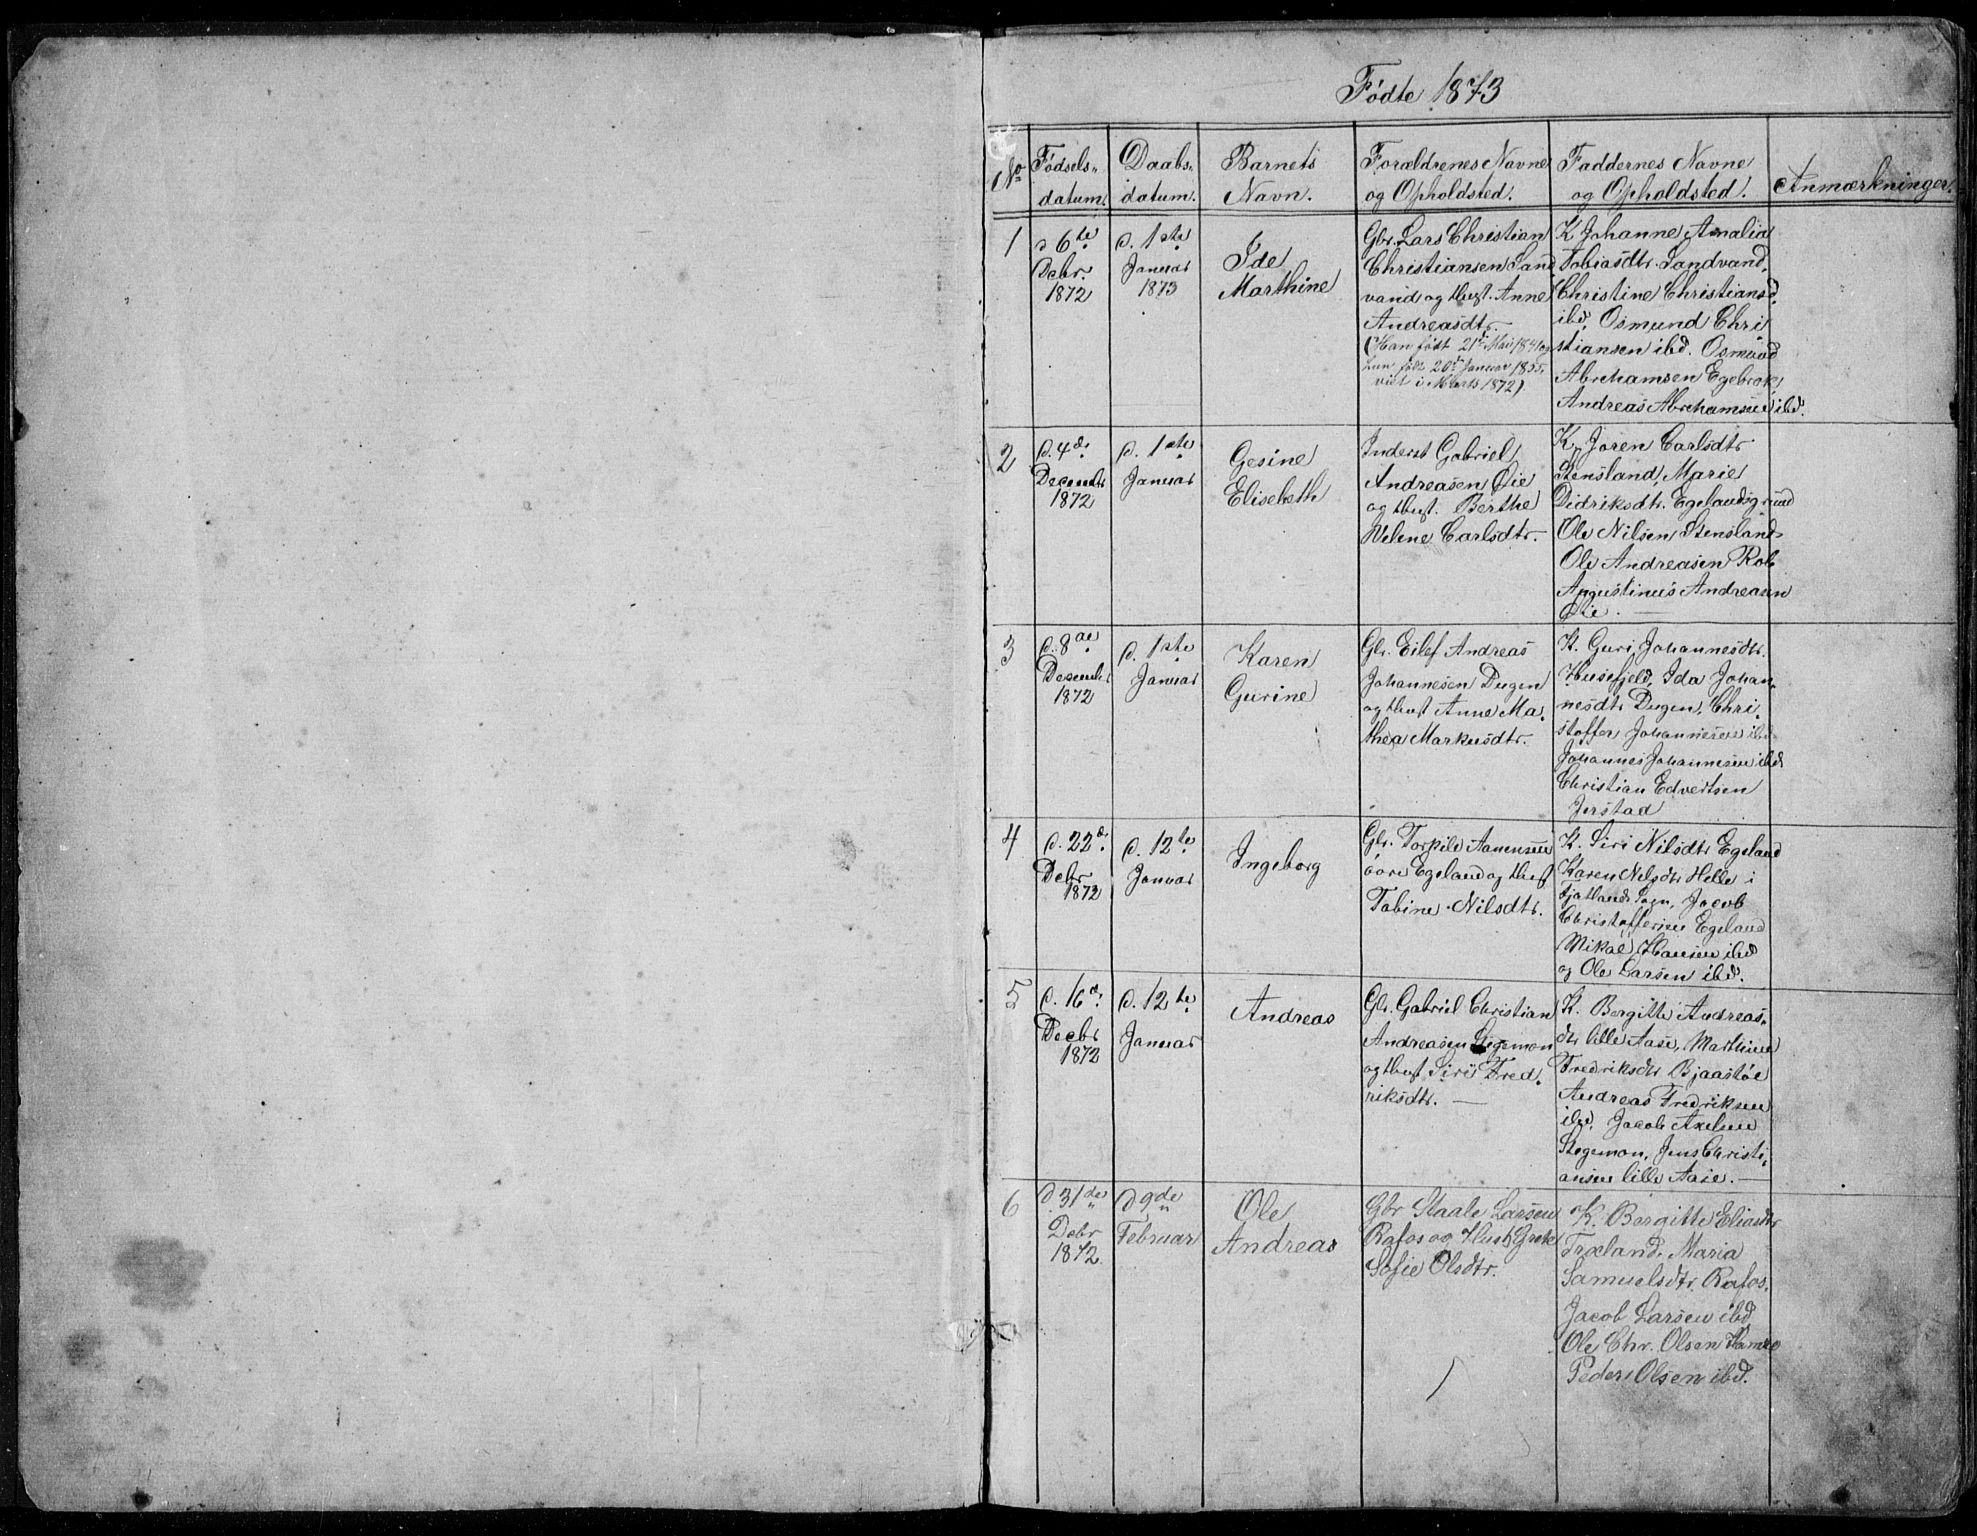 Fødte 1873
No
Fødsels-
datum.
Daabs-
datum.
Barnets
Navn.
Forældrenes Navne
og Opholdsted.
Faddernes Navne
og Opholdsted.
Anmærkninger.
1
d 6te
Debr.
1872
d. 1ste
Januar
1873
Ide
Marthine
Gbr. Lars Christian
Christiansen Sand
vand og Hust. Anne
Andreasdtr.
(Han født 21de Mai 1841 og
hun født 20de Januar 1855,
viet i Marts 1872)
K Johanne Amalia
Tobiasdtr. Sandvand,
Christine Christiansd.
ibd, Osmund Chri
stiansen ibd. Osmund
Abrehamsen Egebrok,
Andreas Abrehamsen ibd.
2
d. 4de
Decembr
1872
d. 1ste
Januar
Gesine
Elisebeth
Inderst Gabriel
Andreasen Øie
og Hust. Berthe
Helene Carlsdtr.
K. Joren Carlsdtr
Stensland, Marie
Didriksdtr. Egelandsgrund
Ole Nilsen Stensland
Ole Andreasen Rob
Augustinus Andreasen
Øie.
3
d. 8de
Decembr
1872
d. 1ste
Januar
Karen
Gurine
Gbr. Eilef Andreas
Johannesen Dugen
og Hust Anne Ma-
thea Markusdtr.
K. Guri Johannesdtr.
Husefjeld, Ida Johan-
nesdtr Dugen, Chri-
stoffer Johannesen ibd
Johannes Johannesen ibd
Christian Edvertsen
Jerstad
4
d. 22de
Debr
1872
d. 12te
Januar
Ingeborg
Gbr. Torkild Aanensen
øvre Egeland og Hust
Tobine Nilsdtr.
K. Siri Nilsdtr Egeland
Karen Nilsdtr Helle i
Fjotlands Sogn, Jacob
Christoffersen Egeland
Mikal Hansen ibd
og Ole Larsen ibd.
5
d. 16de
Decbr
1872
d. 12te
Januar
Andreas
Gbr. Gabriel Christian
Andreasen Stegemon
og Hust Siri Fred-
riksdtr.
K. Bergitte Andreas-
dtr lille Aase, Marthine
Fredriksdtr Bjaastøe
Andreas Fredriksen
ibd, Jacob Axelsen
Stegemon, Jens Christi-
ansen lille Aase.
6
d 31de
Debr
1872.
d 9de
Februar
Ole
Andreas
Gbr Staale Larsen
Rafos og Hust Grete
Sofie Olsdtr.
K. Bergitte Eliasdtr
Træland. Maria
Samuelsdtr Rafos.
Jacob Larsen ibd
Ole Chr. Olsen
Peder Olsen ibd.